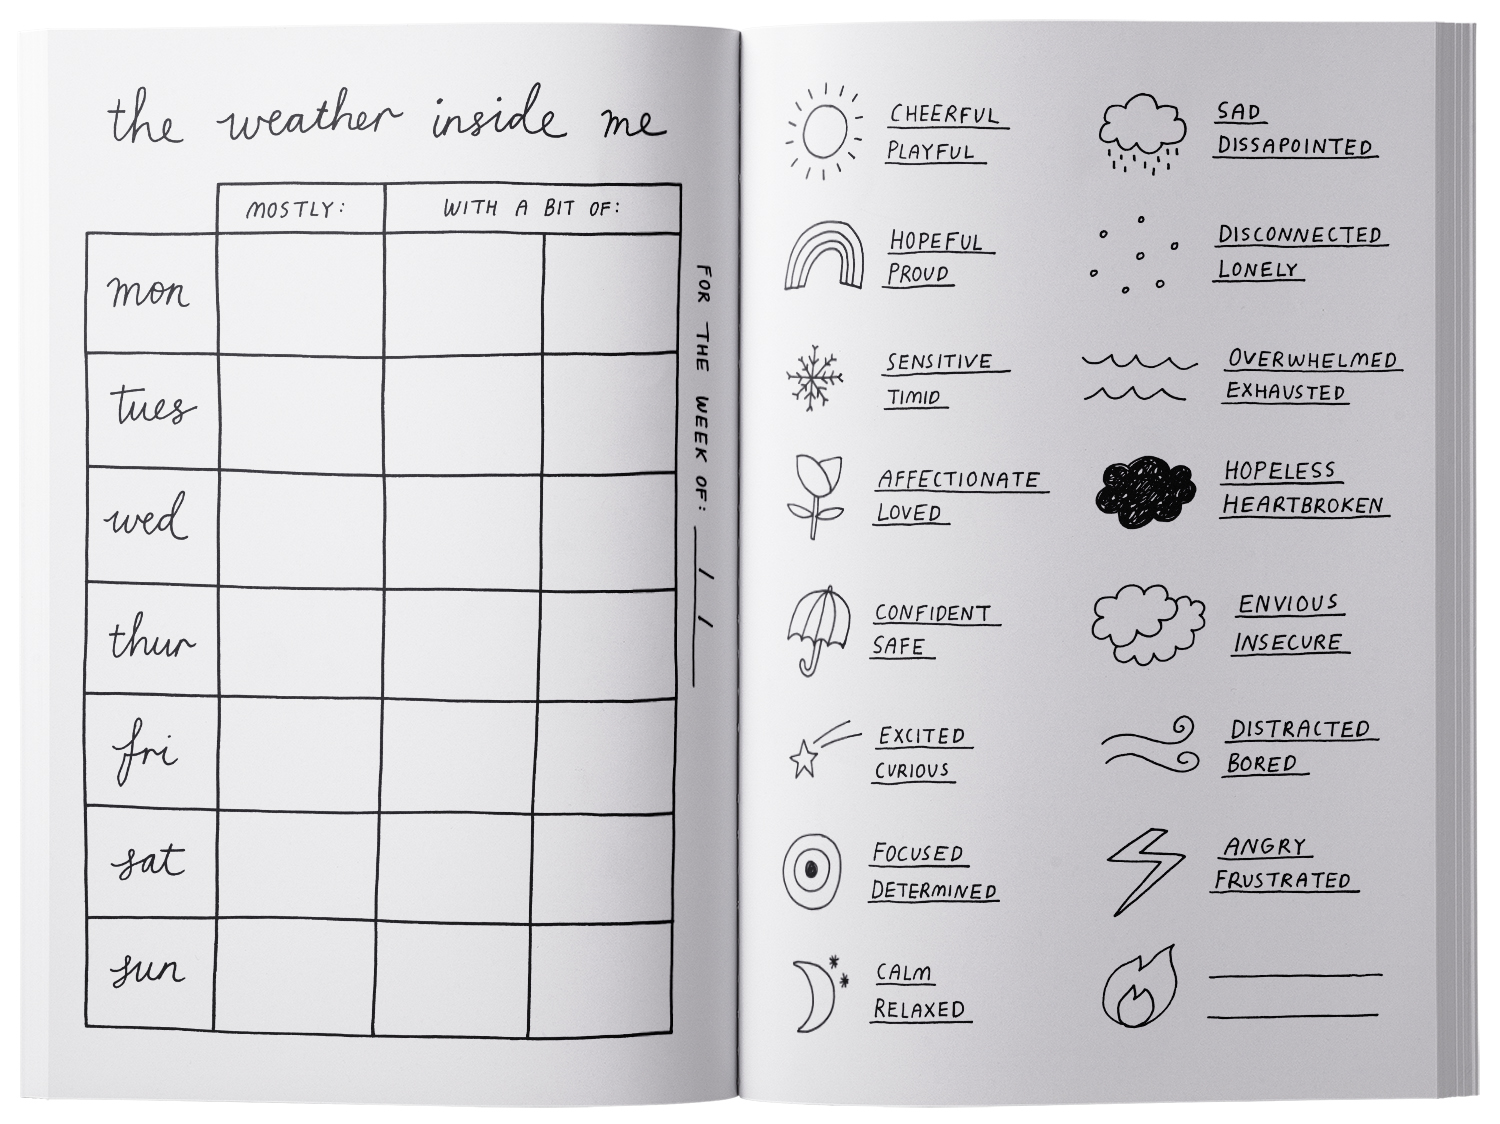 the weather inside me
MOSTLY: WITH A BIT OF:
mon
tues
wed
thur
fri
sat
sun
FOR THE WEEK OF: / /
CHEERFUL
PLAYFUL
HOPEFUL
PROUD
SENSITIVE
TIMID
AFFECTIONATE
LOVED
CONFIDENT
SAFE
EXCITED
CURIOUS
FOCUSED
DETERMINED
CALM
RELAXED
SAD
DISSAPOINTED
DISCONNECTED
LONELY
OVERWHELMED
EXHAUSTED
HOPELESS
HEARTBROKEN
ENVIOUS
INSECURE
DISTRACTED
BORED
ANGRY
FRUSTRATED